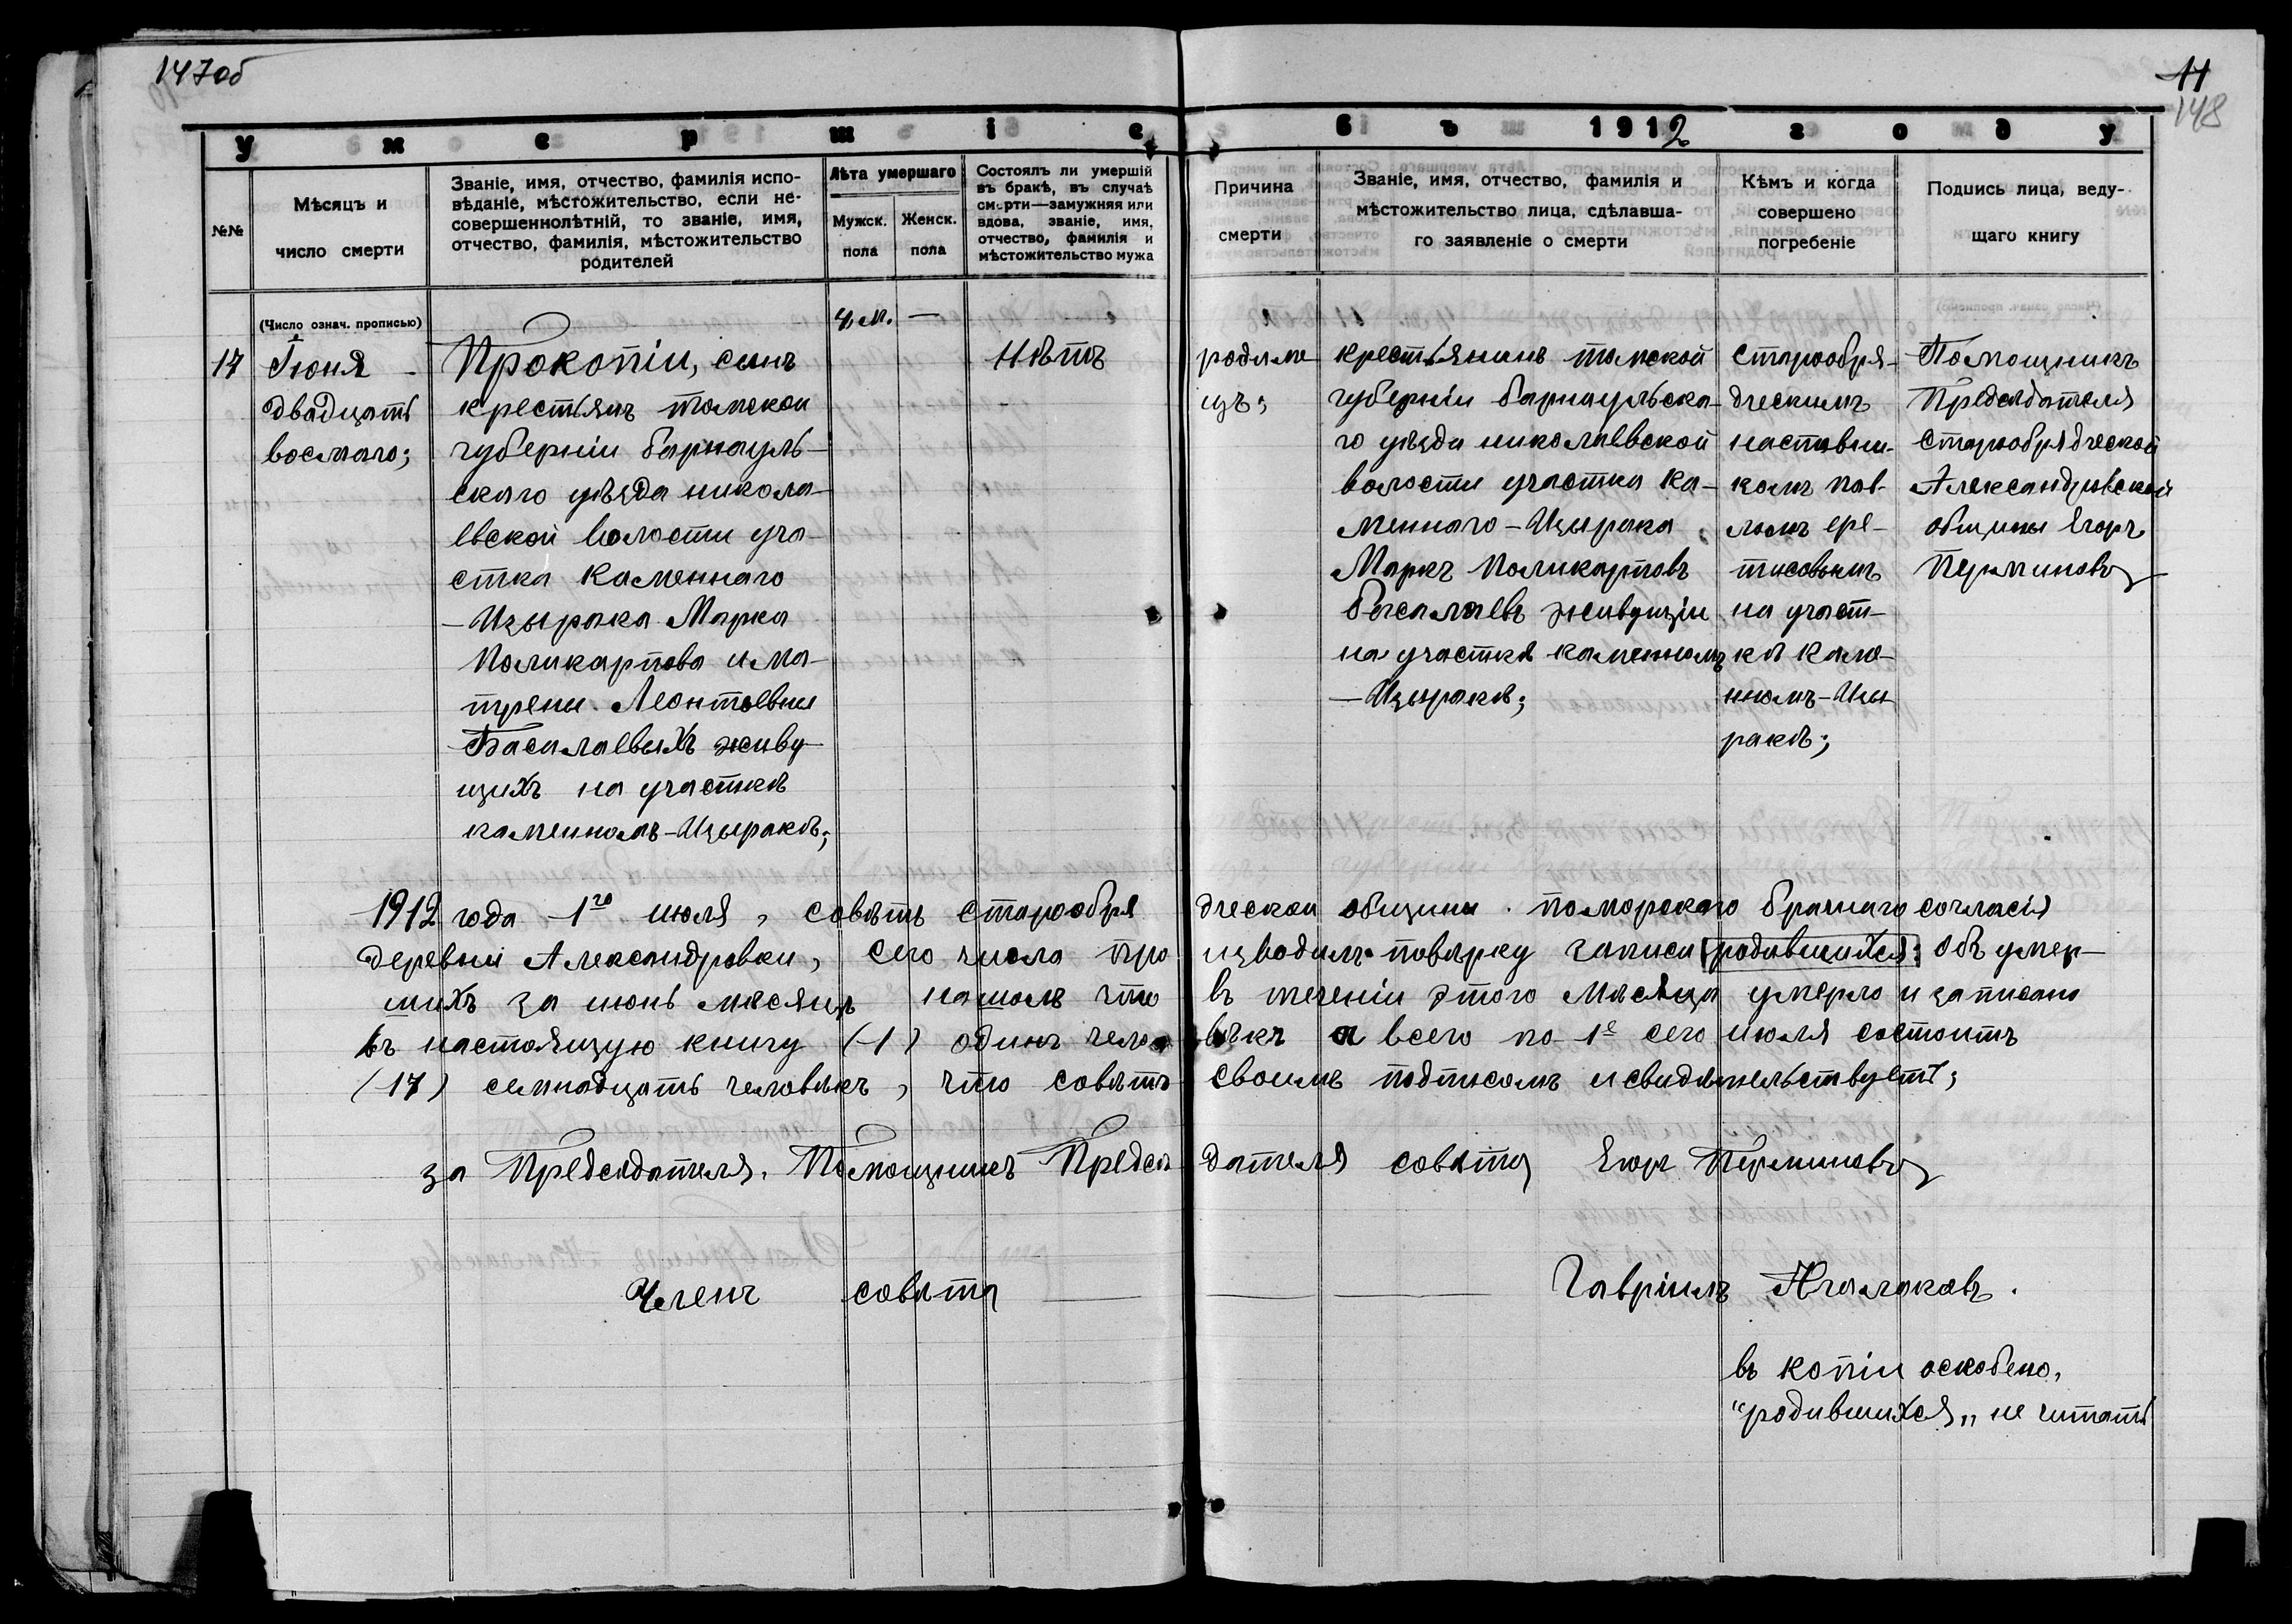 147об
11
148
Умершіе
въ 1912 году
№№
Мѣсяцъ и
число смерти
Званіе, имя, отчество, фамилія испо-
вѣданіе, мѣстожительство, если не-
совершеннолѣтній, то званіе, имя,
отчество, фамилія, мѣстожительство
родителей
Лѣта умершаго
Мужск.
пола
Женск.
пола
Состоялъ ли умершій
въ бракѣ, въ случаѣ
смерти—замужняя или
вдова, званіе, имя,
отчество, фамилія и
мѣстожительство мужа
Причина
смерти
Званіе, имя, отчество, фамилія и
мѣстожительство лица, сдѣлавша-
го заявленіе о смерти
Кѣмъ и когда
совершено
погребеніе
Подпись лица, веду-
щаго книгу
(Число означ. прописью)
17
Іюня
двадцать
восмаго;
Прокопіи, сынъ
крестьянъ томскои
губерніи барнауль-
скаго уѣзда никола-
евской волости уча-
стка Каменнаго
-Изырака Марка
Поликарпова и ма-
трены Леонтьевны
Басалаевыхъ живу-
щихъ на участкѣ
каменномъ-Изыракѣ;
4 м. —
Нѣтъ
родиме
цъ;
крестьянинъ томской
губерніи барнаульска-
го уѣзда николаевской
волости участка Ка-
меннаго-Изырака
Маркъ Поликарповъ
басалаевъ живущіи
на участкѣ каменномъ
-Изыракѣ;
Старообря-
дческимъ
наставни-
комъ пав-
ломъ ере-
тисовымъ
на участ-
кѣ Каме-
нномъ-Изы
ракѣ;
Помощникъ
Предсѣдателя
Старообрядческой
Александровской
общины Егоръ
Перминовъ
1912 года 1го июля, совѣтъ старообря дческои общины поморскаго брачнаго согласія
деревни Александровки, сего числа про изводилъ повѣрку записи [родившихся] объ умер-
шихъ за июнь мѣсяцъ нашолъ что въ теченіи этого мѣсяца умерло и записано
въ настоящую книгу (1) одинъ чело вѣкъ а всего по 1е сего июля состоитъ
(17) семнадцать человѣкъ, что совѣтъ своимъ подписомъ и свидѣтельствуетъ;
за Предсѣдателя. Помощникъ Предсѣ дателя совѣта Егоръ Перминовъ
Членъ совѣта Гавріилъ
въ копіи оскоблено,
"родившихся" не читать